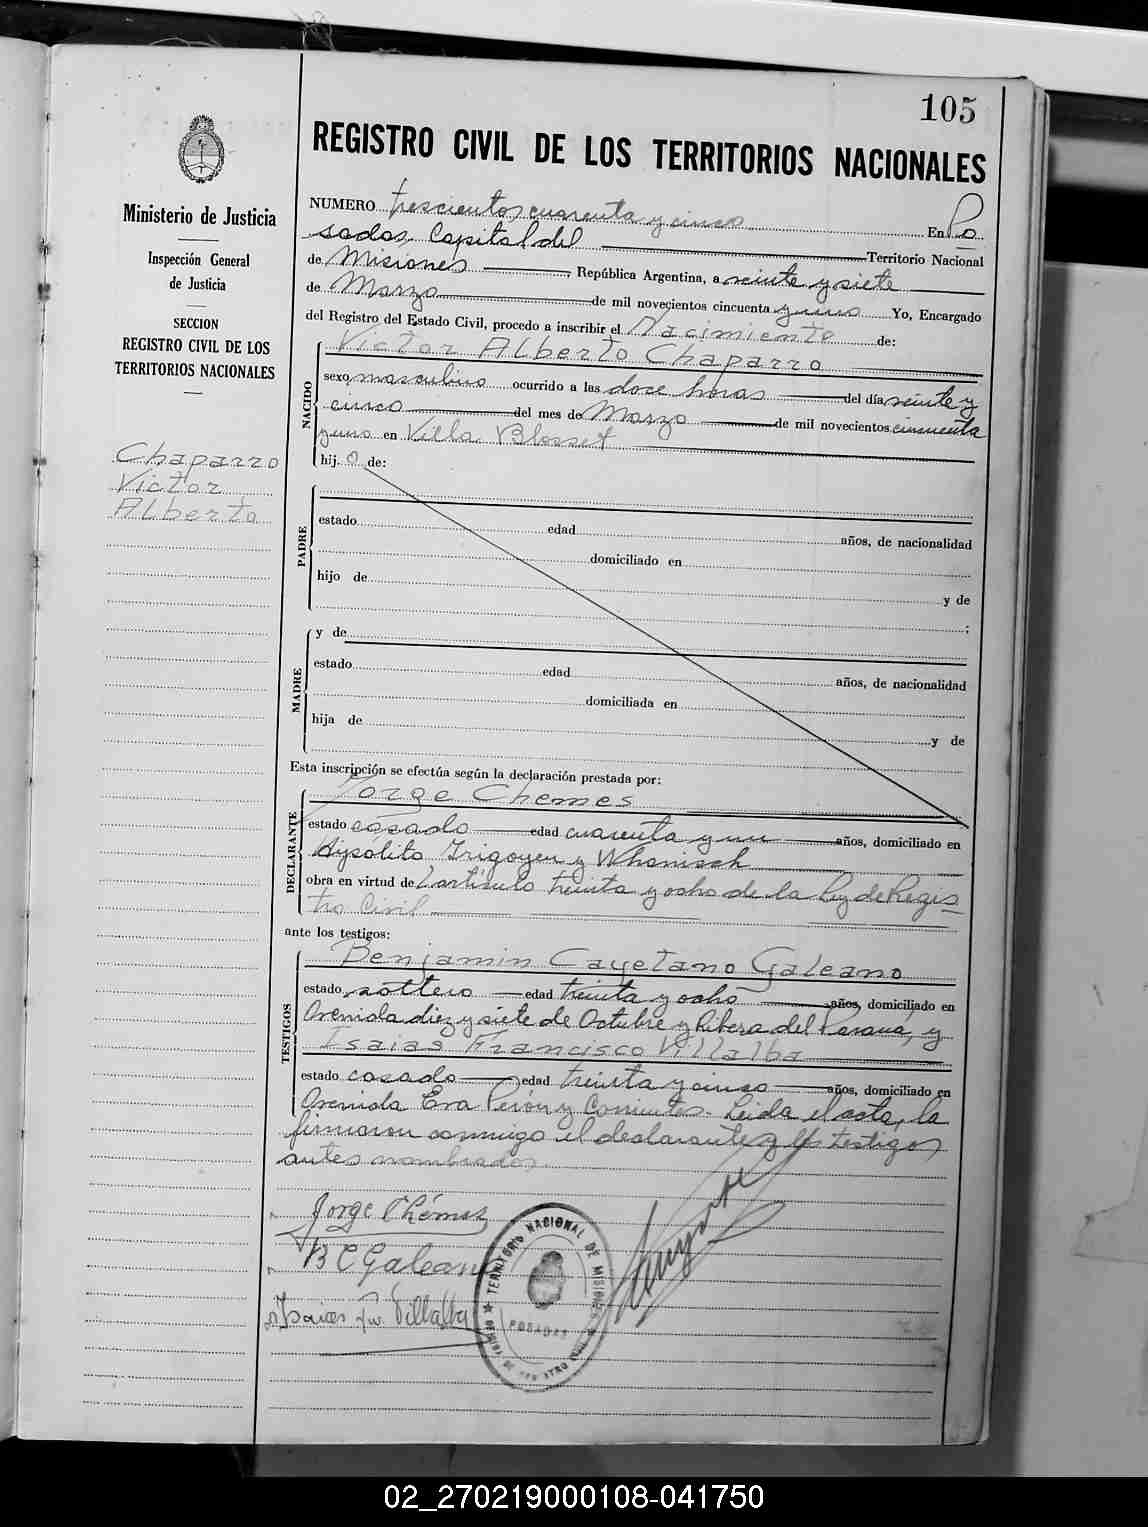 105
REGISTRO CIVIL DE LOS TERRITORIOS NACIONALES
Ministerio de Justicia
Inspección General
de Justicia
SECCION
REGISTRO CIVIL DE LOS
TERRITORIOS NACIONALES
Chaparro
Victor
Alberto
NUMERO trescientos cuarenta y cinco En Po
sadas, Capital del Territorio Nacional
de Misiones, República Argentina, a veinte y siete
de Marzo de mil novecientos cincuenta y uno Yo, Encargado
del Registro del Estado Civil, procedo a inscribir el Nacimiento de:
Victor Alberto Chaparro
NACIDO
sexo masculino ocurrido a las doce horas del día veinte y
cinco del mes de Marzo de mil novecientos cincuenta
y uno en Villa Blosset
hij o de:
PADRE
estado edad años, de nacionalidad
domiciliado en
hijo de y de
;
MADRE
y de
estado edad años, de nacionalidad
domiciliada en
hija de y de
Esta inscripción se efectúa según la declaración prestada por:
DECLARANTE
Jorge Chemes
estado casado edad cuarenta y un años, domiciliado en
Hipólito Irigoyen y
obra en virtud de l artículo treinta y ocho de la Ley de Regis
tro Civil
ante los testigos:
TESTIGOS
Benjamin Cayetano Galeano
estado soltero edad treinta y ocho años, domiciliado en
Avenida diez y siete de Octubre y Ribera del Paraná, y
Isaias Francisco Villalba
estado casado edad treinta y cinco años, domiciliado en
Avenida Eva Perón y Corrientes. Leida el acta, la
firmaron conmigo el declarante y los testigos
antes nombrados
Jorge Chémes
B C Galeano
Isaias Fco. Villalba
TERRITORIO NACIONAL DE MISIONES
POSADAS
02_270219000108-041750